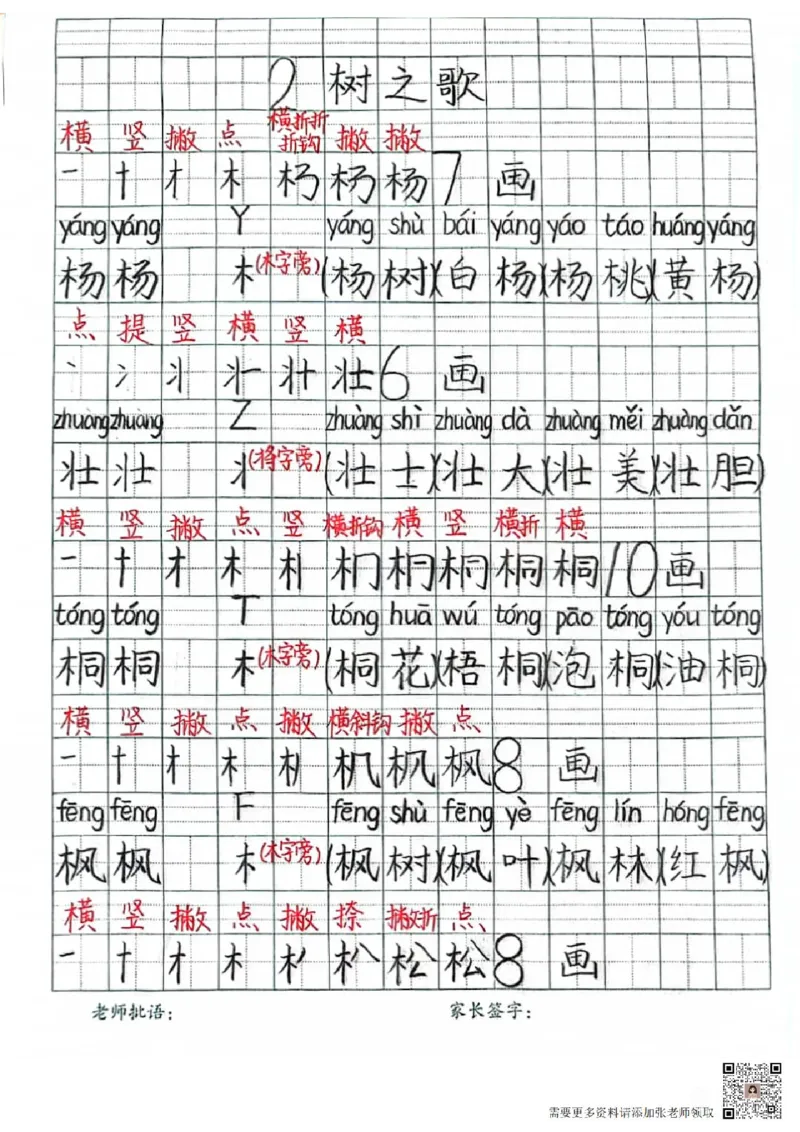 2 树之歌
横 竖 撇 点 横折折折钩 撇 撇
一 十 才 木 杨 杨 杨 7 画
yáng yáng Y yáng shù bái yáng yáo táo huáng yáng
杨 杨 木(木字旁) (杨 树)(白 杨)(杨 桃)(黄 杨)
点 提 竖 横 竖 横
丶 冫 丬 壮 壮 壮 6 画
zhuàng zhuàng Z zhuàng shì zhuàng dà zhuàng měi zhuàng dǎn
壮 壮 丬(将字旁) (壮 士)(壮 大)(壮 美)(壮 胆)
横 竖 撇 点 竖 横折钩 横 竖 横折 横
一 十 才 木 桐 桐 桐 桐 桐 桐 10 画
tóng tóng T tóng huā wú tóng pāo tóng yóu tóng
桐 桐 木(木字旁) (桐 花)(梧 桐)(泡 桐)(油 桐)
横 竖 撇 点 撇 横斜钩 撇 点
一 十 才 木 枫 机 枫 枫 8 画
fēng fēng F fēng shù fēng yè fēng lín hóng fēng
枫 枫 木(木字旁) (枫 树)(枫 叶)(枫 林)(红 枫)
横 竖 撇 点 撇 捺 撇折 点
一 十 才 木 松 朳 松 松 8 画
老师批语： 家长签字：
需要更多资料请添加张老师领取